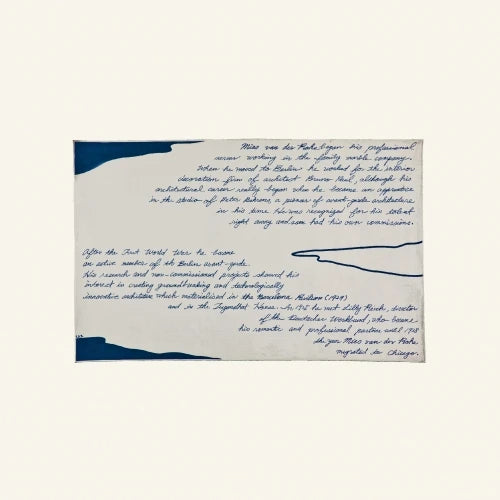 Mies van der Rohe began his professional
career working in the family marble company.
When he moved to Berlin he worked for the interior
decoration firm of architect Bruno Paul, although his
architectural career really began when he became an apprentice
in the studio of Peter Behrens, a pioneer of avant-garde architecture
in his time. He was recognized for his talent
right away and soon had his own commissions.
After the First World War he became
an active member of the Berlin avant-garde.
His research and non-commissioned projects showed his
interest in creating groundbreaking and technologically
innovative architecture which materialised in the Barcelona Pavilion (1929)
and in the Tugendhat House. In he met Lilly Reich, director
of the Deutscher Werkbund, who became
his romantic and professional partner until 1938
the year Mies van der Rohe
migrated to Chicago.